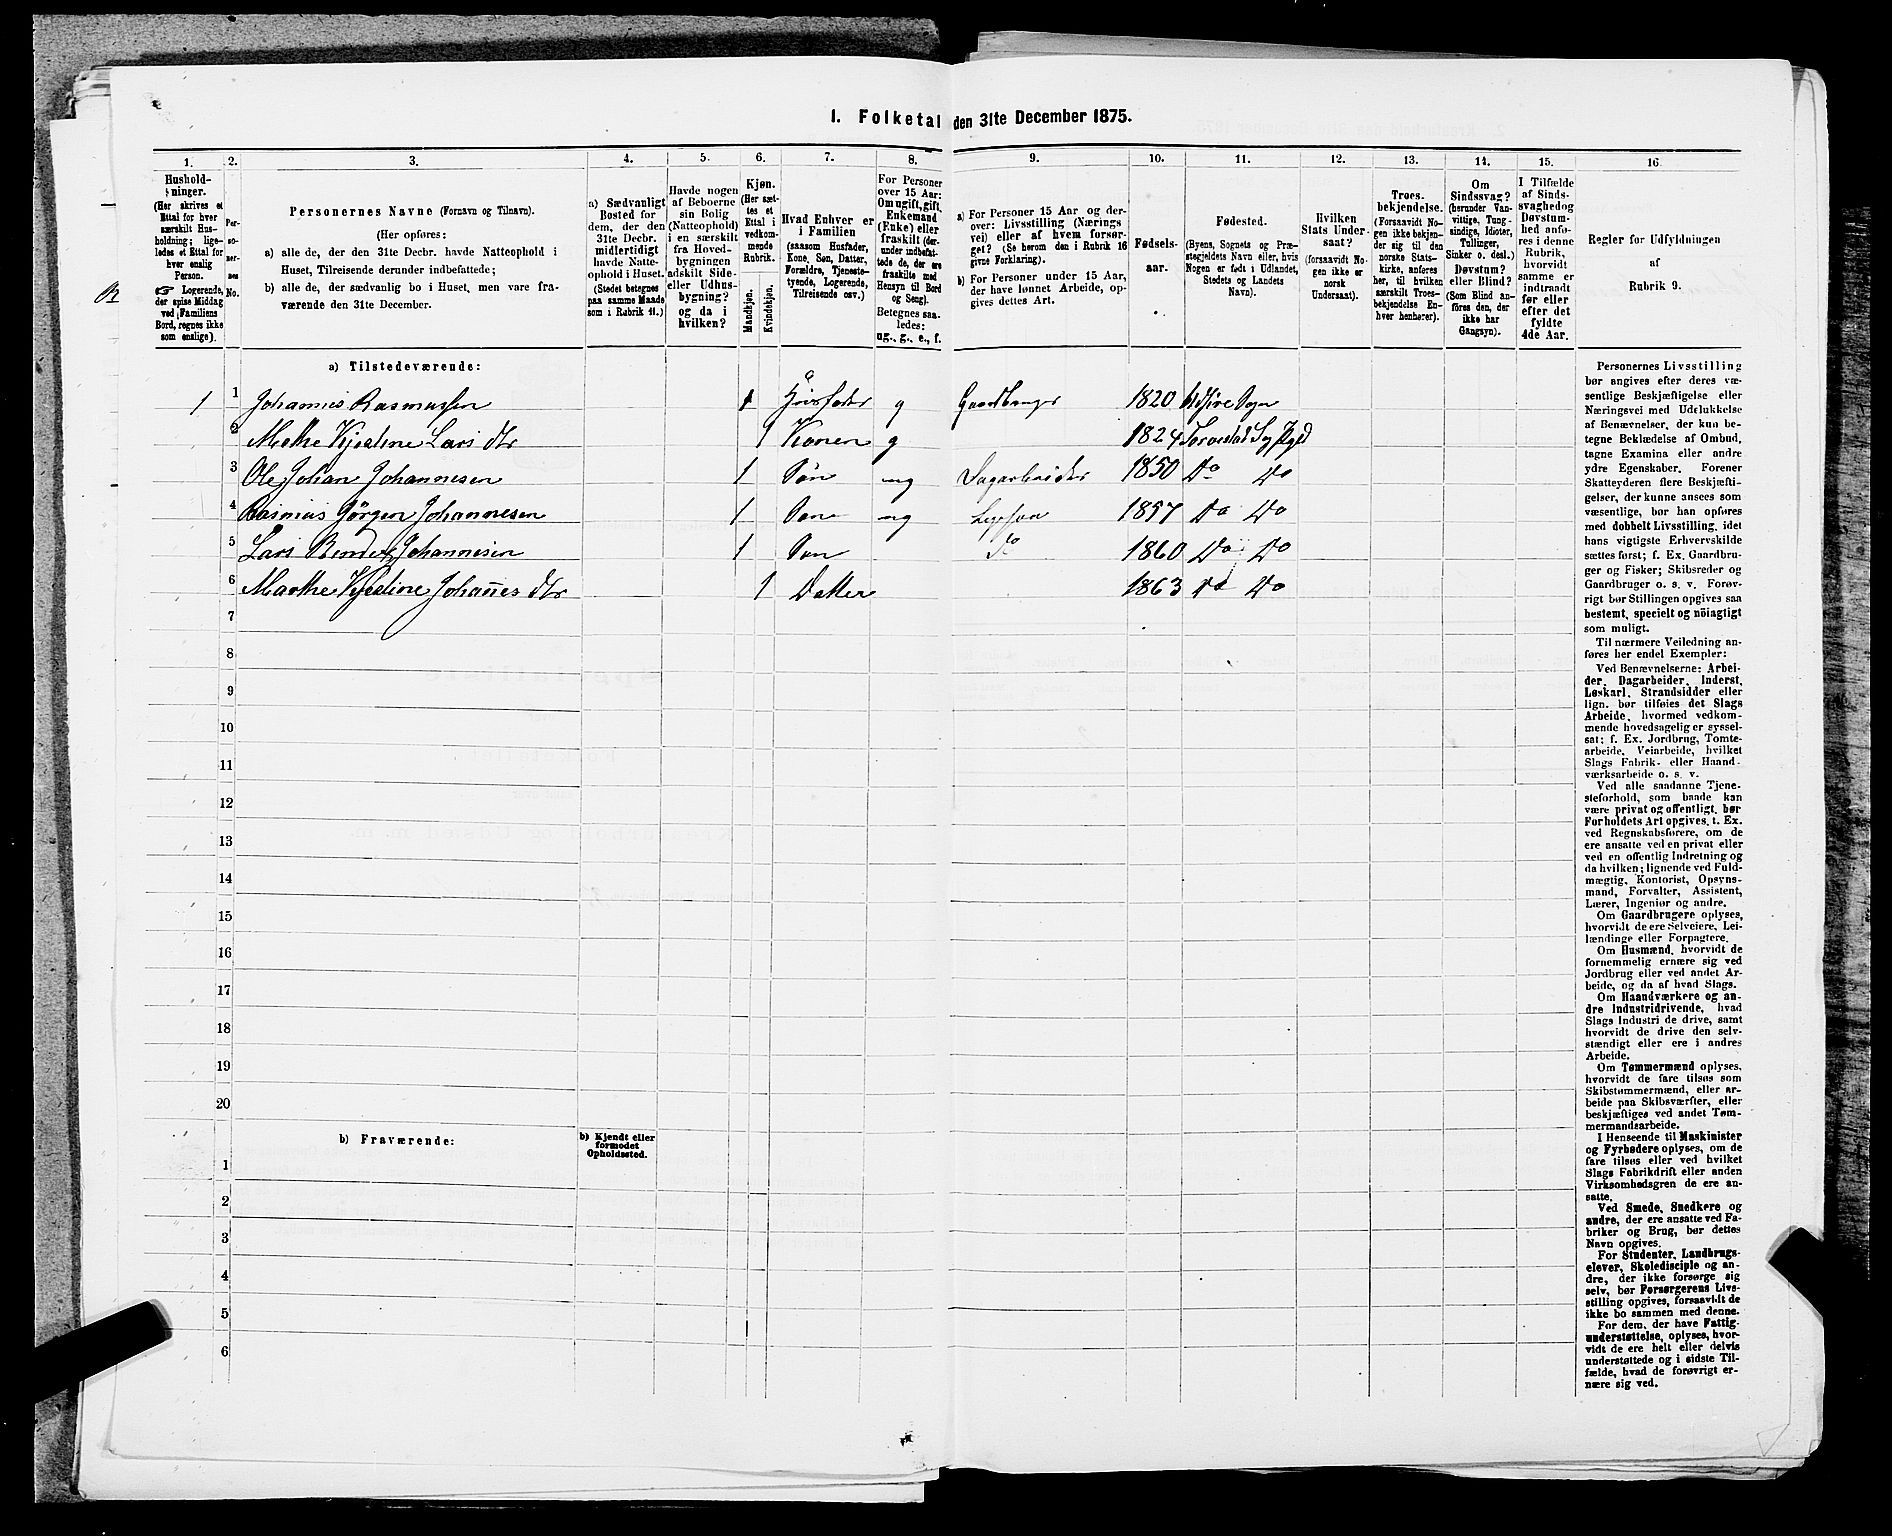 1. Folketal den 31te December 1875.
1.
2.
3.
4.
5.
6.
7.
8.
9.
10.
11.
12.
13.
14.
15.
16
Hushold-
ninger.
(Her skrives et
Ettal for hver
særskilt Hus-
holdning; lige-
ledes et Ettal for
hver enslig
Person.
☞ Logerende,
der spise Middag
ved Familiens
Bord, regnes ikke
som enslige).
Per-
so-
ner-
nes
No.
Personernes Navne (Fornavn og Tilnavn).
(Her opføres:
a) alle de, der den 31te Decbr. havde Natteophold i
Huset, Tilreisende derunder indbefattede;
b) alle de, der sædvanlig bo i Huset, men vare fra-
værende den 31te December.
a) Sædvanligt
Bosted for
dem, der den
31te Decbr.
midlertidigt
havde Natte-
ophold i Huset.
(Stedet betegnes
paa samme Maade
som i Rubrik 11.)
Havde nogen
af Beboerne
sin Bolig
(Natteophold)
i en særskilt
fra Hoved-
bygningen
adskilt Side-
eller Udhus-
bygning?
og da i
hvilken?
Kjøn.
(Her sæt-
tes et
Ettal i
vedkom-
mende
Rubrik.
Mandkjøn.
Kvindekjøn.
Hvad Enhver er
i Familien
(saasom Husfader,
Kone, Søn, Datter,
Forældre, Tjeneste-
tyende, Logerende,
Tilreisende osv.)
For Personer
over 15 Aar:
Om ugift, gift,
Enkemand
(Enke) eller
fraskilt (der-
under indbefat-
tede de, der ere
fraskilte med
Hensyn til Bord
og Seng).
Betegnes saa-
ledes:
ug., g., e., f.
a) For Personer 15 Aar og der-
over: Livsstilling (Nærings
vei) eller af hvem forsør-
get? (Se herom den i Rubrik 16
givne Forklaring).
b) For Personer under 15 Aar,
der have lønnet Arbeide, op-
gives dettes Art.
Fødsels-
aar.
Fødested.
(Byens, Sognets og Præ-
stegjeldets Navn eller, hvis
Nogen er født i Udlandet,
Stedets og Landets
Navn).
Hvilken
Stats Under-
saat?
(forsaavidt No-
gen ikke er
norsk
Undersaat).
Troes-
bekjendelse.
(Forsaavidt No-
gen ikke bekjen-
der sig til den
norske Stats-
kirke, anføres
her, til hvilken
særskilt Troes-
bekjendelse En-
hver henhører).
Om
Sindssvag?
(herunder Van-
vittige, Tung-
sindige, Idioter,
Tullinger,
Sinker o. desl.)
Døvstum?
eller Blind?
(Som Blind an-
føres den, der
ikke har
Gangsyn).
I Tilfælde
af Sinds-
svaghed og
Døvstum-
hed anfø-
res i denne
Rubrik,
hvorvidt
samme er
indtraadt
før eller
efter det
fyldte
4de Aar.
Regler for Udfyldningen
af
Rubrik 9.
a) Tilstedeværende:
1 1 Johannes Rasmussen 1 Husfader g Gaardbruger 1820 Sogn
2 Marthe Kjestine Lars dtr 1 Konen g 1824
3 Ole Johan Johannesen 1 Søn ug Dagarbeider 1850 Do Do
4 Rasmus Jørgen Johannesen 1 Søn ug 1857 Do Do
5 Lars Johannesen 1 Søn Do 1860 Do Do
6 Marthe Kjestine Johañes dtr 1 Datter 1863 Do Do
7
8
9
10
11
12
13
14
15
16
17
18
19
20
b) Fraværende:
b) Kjendt eller
formodet
Opholdssted.
1
2
3
4
5
6
Personernes Livsstilling
bør angives efter deres væ-
sentlige Beskjæftigelse eller
Næringsvei med Udelukkelse
af Benævnelser, der kun be-
tegne Beklædelse af Ombud,
tagne Examina eller andre
ydre Egenskaber. Forener
Skatteyderen flere Beskjæfti-
gelser, der kunne ansees som
væsentlige, bør han opføres
med dobbelt Livsstilling, idet
hans vigtigste Erhvervskilde
sættes først; f. Ex. Gaardbru-
ger og Fisker; Skibsreder og
Gaardbruger o. s. v. Forøv-
rigt bør Stillingen opgives saa
bestemt, specielt og nöiagtigt
som muligt.
Til nærmere Veiledning an-
føres her endel Exempler:
Ved Benævnelserne: Arbei-
der, Dagarbeider, Inderst,
Løskarl, Strandsidder eller
lign. bør tilføies det Slags
Arbeide, hvormed vedkom-
mende hovedsagelig er syssel-
sat; f. Ex. Jordbrug, Tomte-
arbeide, Veiarbeide, hvilket
Slags Fabrik- eller Haand-
værksarbeide o. s. v.
Ved alle saadanne Tjene-
steforhold, som baade kan
være privat og offentligt, bør
Forholdets Art opgives, t. Ex.
ved Regnskabsførere, om de
ere ansatte ved en privat eller
ved en offentlig Indretning og
da hvilken; lignende ved Fuld-
mægtig, Kontorist, Opsyns-
mand, Forvalter, Assistent,
Lærer, Ingeniør og andre.
Om Gaardbrugere oplyses,
hvorvidt de ere Selveiere, Lei-
lændinge eller Forpagtere.
Om Husmænd, hvorvidt de
fornemmelig ernære sig ved
Jordbrug eller ved andet Ar-
beide, og da af hvad Slags.
Om Haandværkere og an-
dre Industridrivende, hvad
Slags Industri de drive, samt
hvorvidt de drive den selv-
stændigt eller ere i andres
Arbeide.
Om Tømmermænd oplyses,
hvorvidt de fare tilsøs som
Skibstømmermænd, eller ar-
beide paa Skibsværfter, eller
beskjæftiges ved andet Tøm-
mermandsarbeide.
I Henseende til Maskinister
og Fyrbødere oplyses, om de
fare tilsøs eller ved hvilket
Slags Fabrikdrift eller anden
Virksomhedsgren de ere an-
satte.
Ved Smede, Snedkere og
andre, der ere ansatte ved Fa-
briker og Brug, bør dettes
Navn opgives.
For Studenter, Landbrugs-
elever, Skoledisciple og an-
dre, der ikke forsørge sig
selv, bør Forsørgerens Livs-
stilling opgives, forsaavidt de
ikke bo sammen med denne.
For dem, der have Fattig-
understøttelse, oplyses, hvor-
vidt de ere helt eller delvis
understøttede og i sidste Til-
fælde, hvad de forøvrigt er-
nære sig ved.